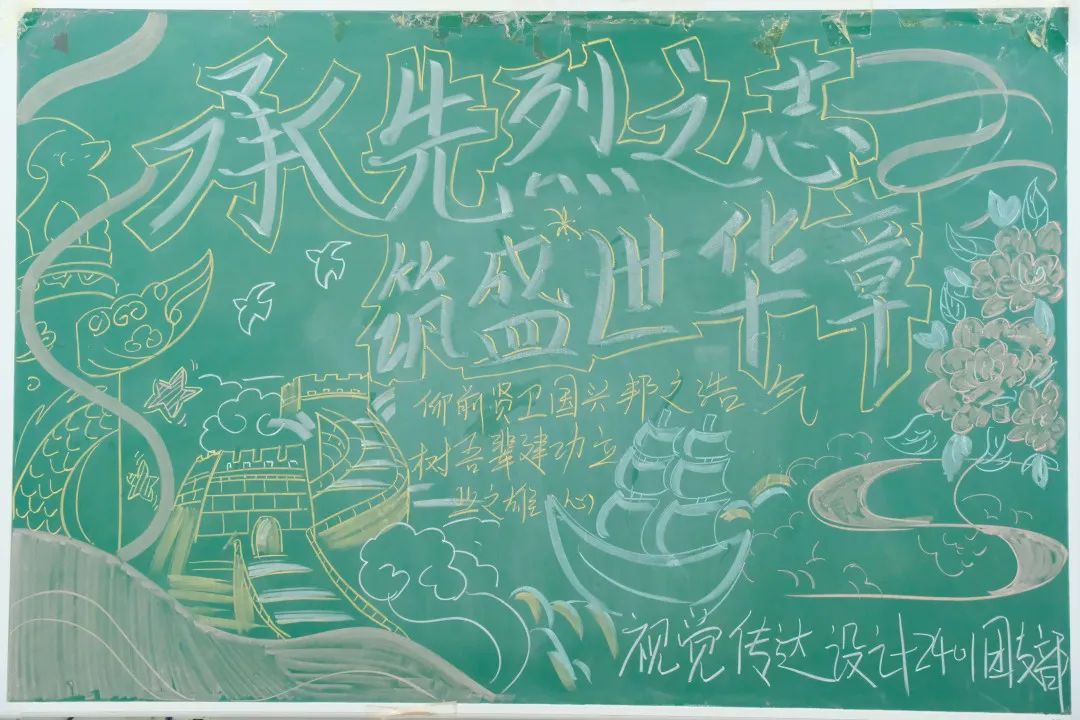 承先烈之志
筑盛世华章
仰前贤卫国兴邦之浩气
树吾辈建功立
业之雄心
视觉传达设计2401团支部